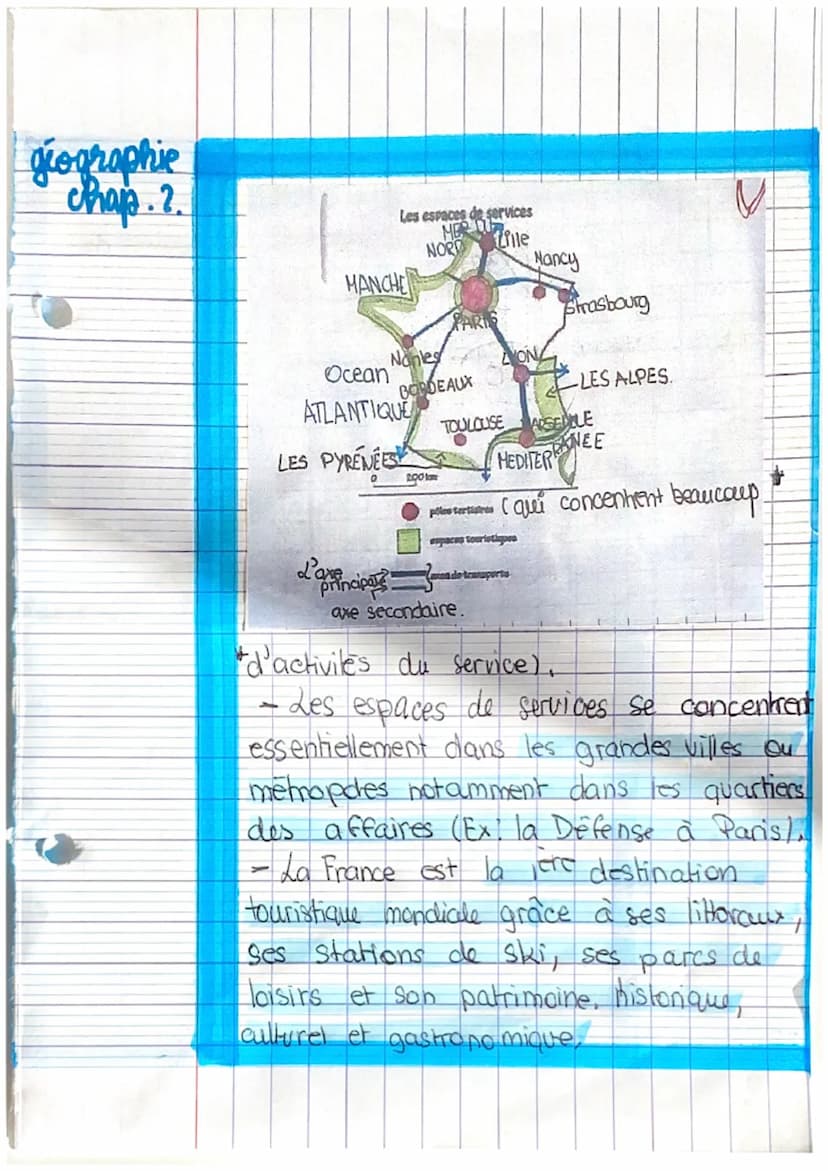 géographie
chap. 2.
Les espaces de services
MER DU
NORD
Lille
Nancy
MANCHE
Strasbourg
PARIS
Nantes
LYON
Ocean
ATLANTIQUE
BORDEAUX
LES ALPES.
TOULOUSE
MARSEILLE
LES PYRÉNÉES
MEDITERRANEE
0 200 km
pôles tertiaires (qui concentrent beaucoup *
espaces touristiques
L'axe
principale
axes de transports
axe secondaire.
*d'activités du service).
- Les espaces de services se concentrent
essentiellement dans les grandes villes ou
métropoles notamment dans les quartiers
des affaires (Ex: la Défense à Paris).
- La France est la 1ère destination
touristique mondiale grâce à ses littoraux,
ses stations de ski, ses parcs de
loisirs et son patrimoine, historique,
culturel et gastronomique.